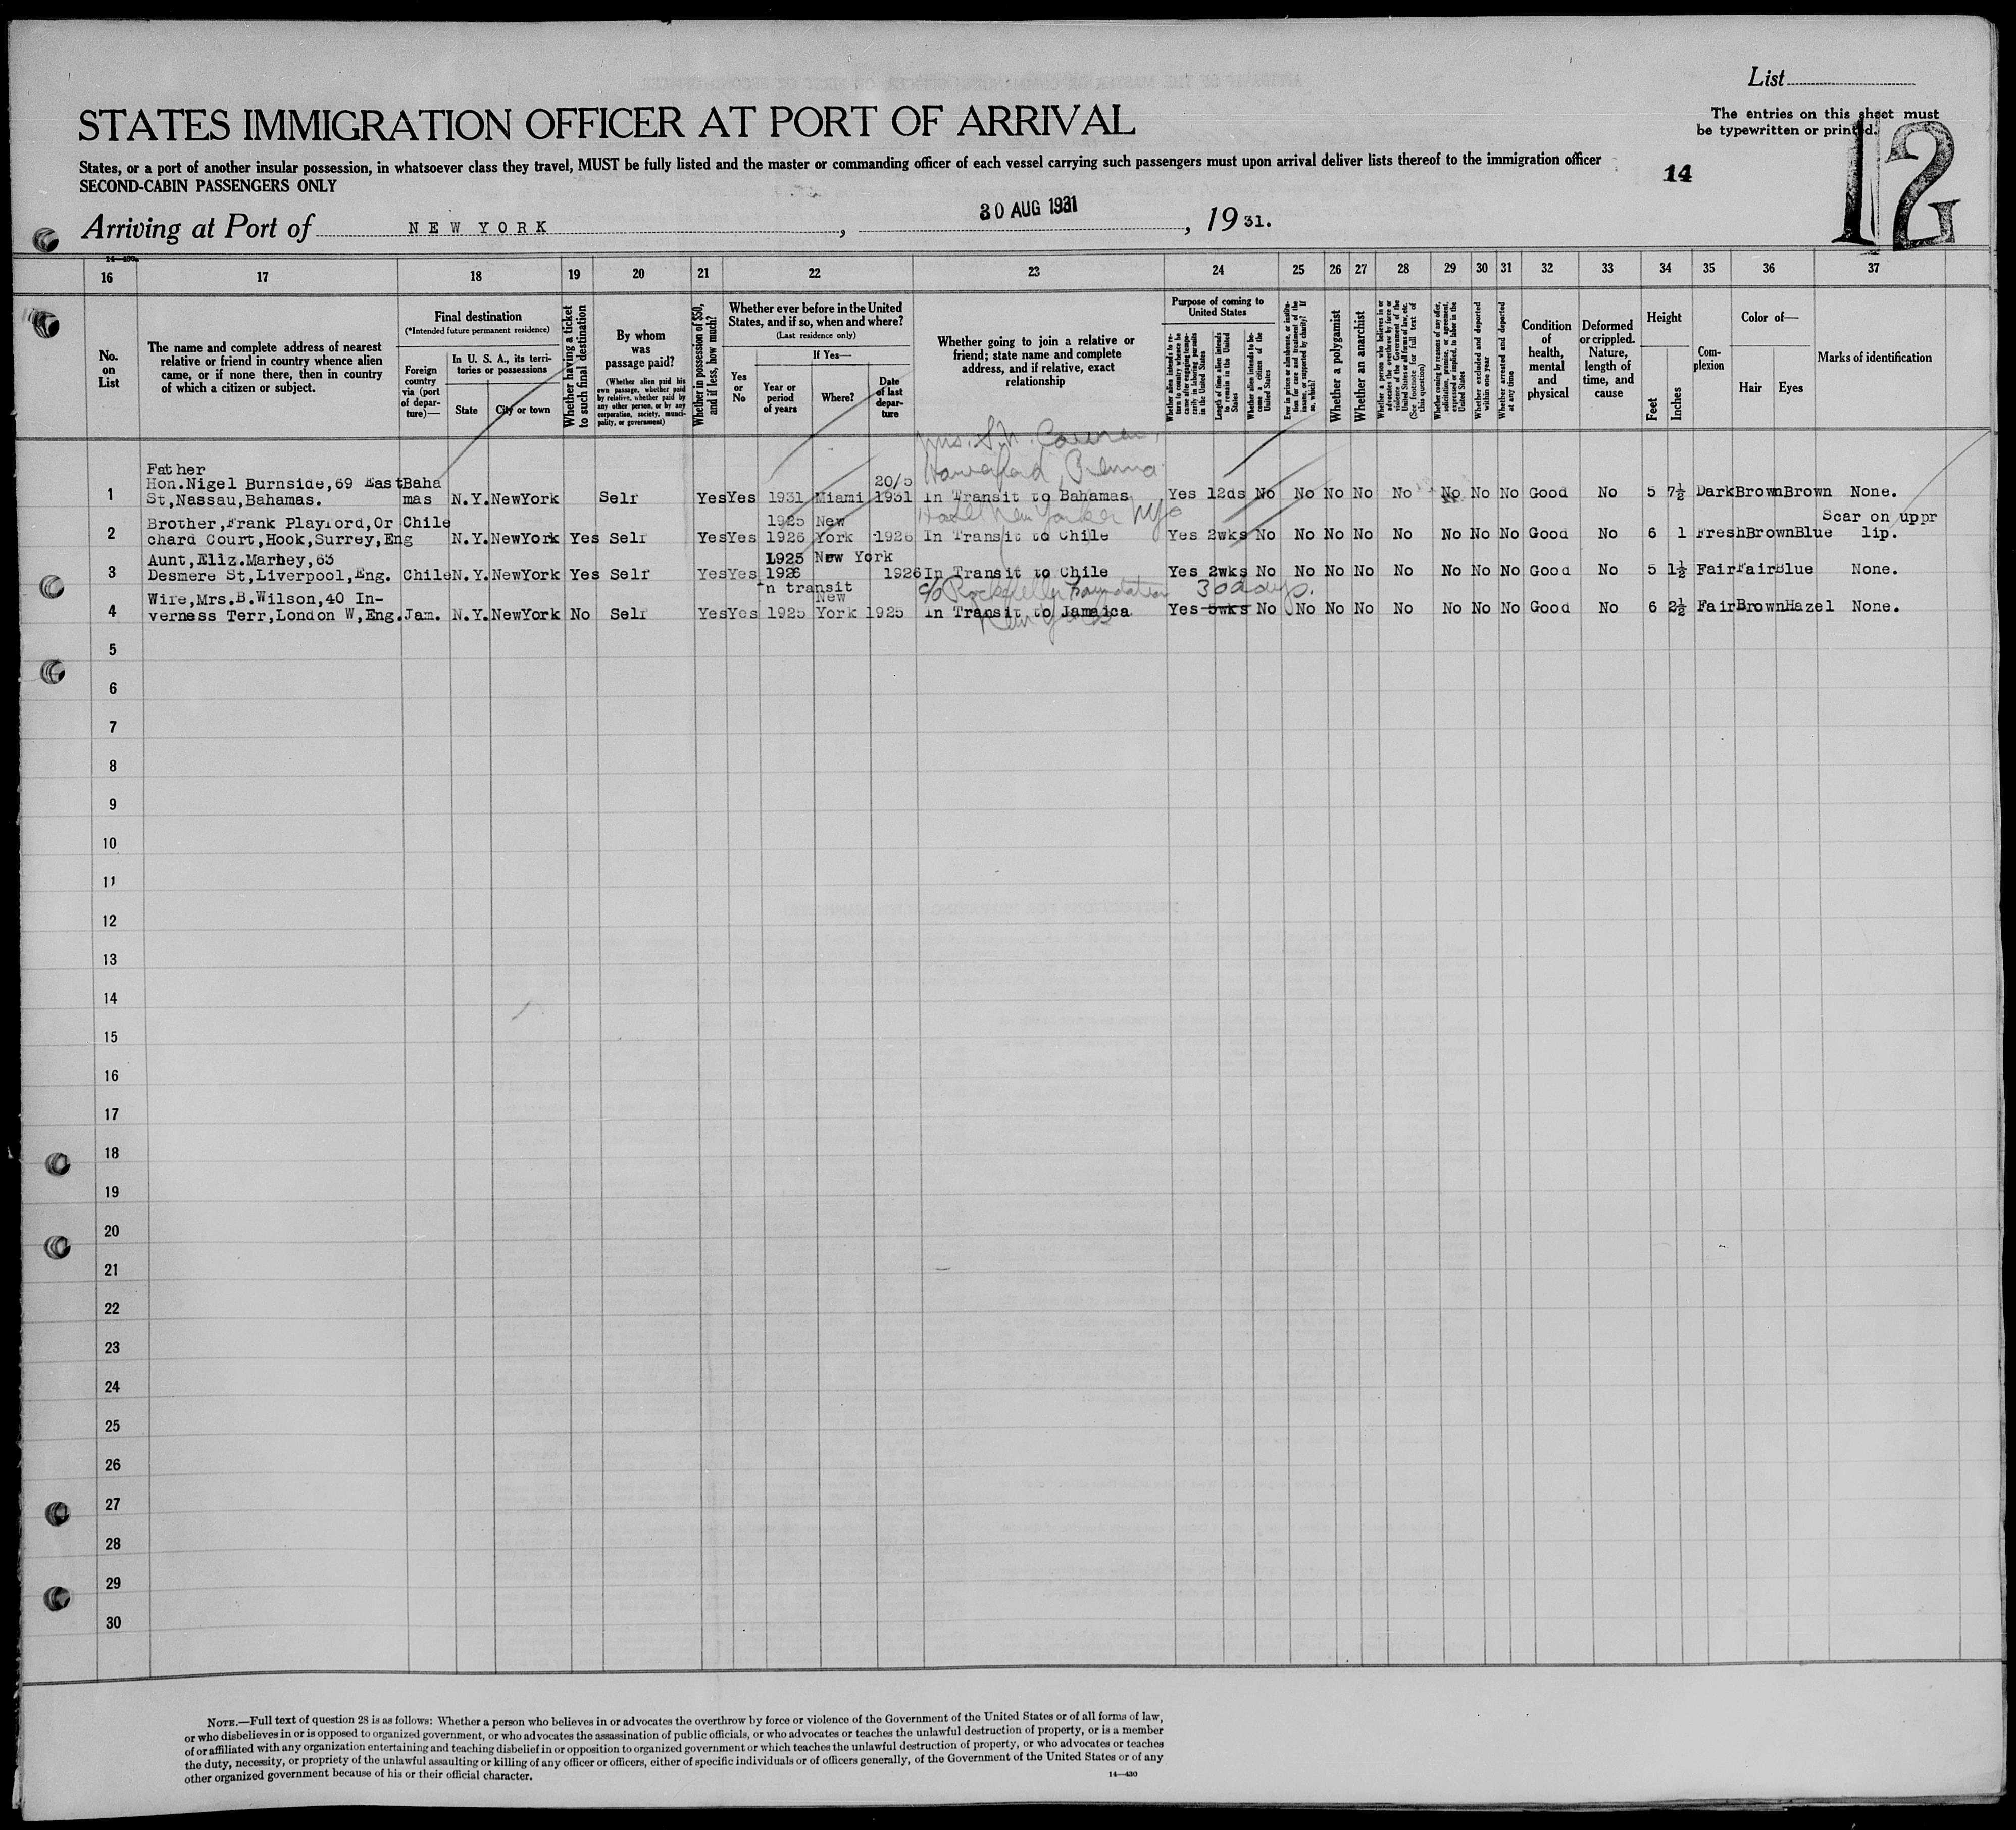 List
The entries on this sheet must
be typewritten or printed.
STATES IMMIGRATION OFFICER AT PORT OF ARRIVAL
12
States, or a port of another insular possession, in whatsoever class they travel, MUST be fully listed and the master or commanding officer of each vessel carrying such passengers must upon arrival deliver lists thereof to the immigration officer
14
SECOND-CABIN PASSENGERS ONLY
Arriving at Port of NEW YORK, 30 AUG 1931, 1931.
14—430
16 17 18 19 20 21 22 23 24 25 26 27 28 29 30 31 32 33 34 35 36 37
No. on List
The name and complete address of nearest
relative or friend in country whence alien
came, or if none there, then in country
of which a citizen or subject.
Final destination
(*Intended future permanent residence)
Foreign country via (port of departure)—
In U. S. A., its territories or possessions
State
City or town
Whether having a ticket to such final destination
By whom was passage paid?
(Whether alien paid his own passage, whether paid by relative, whether paid by any other person, or by any corporation, society, municipality, or government)
Whether in possession of $50, and if less, how much?
Whether ever before in the United States, and if so, when and where?
(Last residence only)
Yes or No
If Yes—
Year or period of years
Where?
Date of last departure
Whether going to join a relative or
friend; state name and complete
address, and if relative, exact
relationship
Purpose of coming to United States
Whether alien intends to return to country whence he came after engaging temporarily in laboring pursuits in the United States
Length of time alien intends to remain in the United States
Whether alien intends to become a citizen of the United States
Ever in prison or almshouse, or institution for care and treatment of the insane, or supported by charity? If so, which?
Whether a polygamist
Whether an anarchist
Whether a person who believes in or advocates the overthrow by force or violence of the Government of the United States or all forms of law, etc. (See footnote for full text of this question)
Whether coming by reasons of any offer, solicitation, promise, or agreement, expressed or implied, to labor in the United States
Whether excluded and deported within one year
Whether arrested and deported at any time
Condition of health, mental and physical
Deformed or crippled. Nature, length of time, and cause
Height
Feet
Inches
Complexion
Color of—
Hair
Eyes
Marks of identification
Mrs. S.N.
Haverford, Penna.
Father
Hon.Nigel Burnside,69 East Baha 20/5
1 St,Nassau,Bahamas. mas N.Y. NewYork Self Yes Yes 1931 Miami 1931 In Transit to Bahamas Yes 12ds No No No No No No No No Good No 5 7½ Dark Brown Brown None.
Hotel New Yorker NYC
Brother,Frank Playford,Or Chile 1925 New Scar on uppr
2 chard Court,Hook,Surrey,Eng N.Y. NewYork Yes Self Yes Yes 1926 York 1926 In Transit to Chile Yes 2wks No No No No No No No No Good No 6 1 Fresh Brown Blue lip.
Aunt,Eliz.Marhey,63 1925 New York
3 Desmere St,Liverpool,Eng. Chile N.Y. NewYork Yes Self Yes Yes 1926 1926 In Transit to Chile Yes 2wks No No No No No No No No Good No 5 1½ Fair Fair Blue None.
In transit
c/o Rockefeller Foundation 30 days.
Wife,Mrs.B.Wilson,40 In- New
4 verness Terr,London W,Eng. Jam. N.Y. NewYork No Self Yes Yes 1925 York 1925 In Transit to Jamaica Yes 5wks No No No No No No No No Good No 6 2½ Fair Brown Hazel None.
New York
5
6
7
8
9
10
11
12
13
14
15
16
17
18
19
20
21
22
23
24
25
26
27
28
29
30
NOTE.—Full text of question 28 is as follows: Whether a person who believes in or advocates the overthrow by force or violence of the Government of the United States or of all forms of law,
or who disbelieves in or is opposed to organized government, or who advocates the assassination of public officials, or who advocates or teaches the unlawful destruction of property, or is a member
of or affiliated with any organization entertaining and teaching disbelief in or opposition to organized government or which teaches the unlawful destruction of property, or who advocates or teaches
the duty, necessity, or propriety of the unlawful assaulting or killing of any officer or officers, either of specific individuals or of officers generally, of the Government of the United States or of any
other organized government because of his or their official character.
14—430